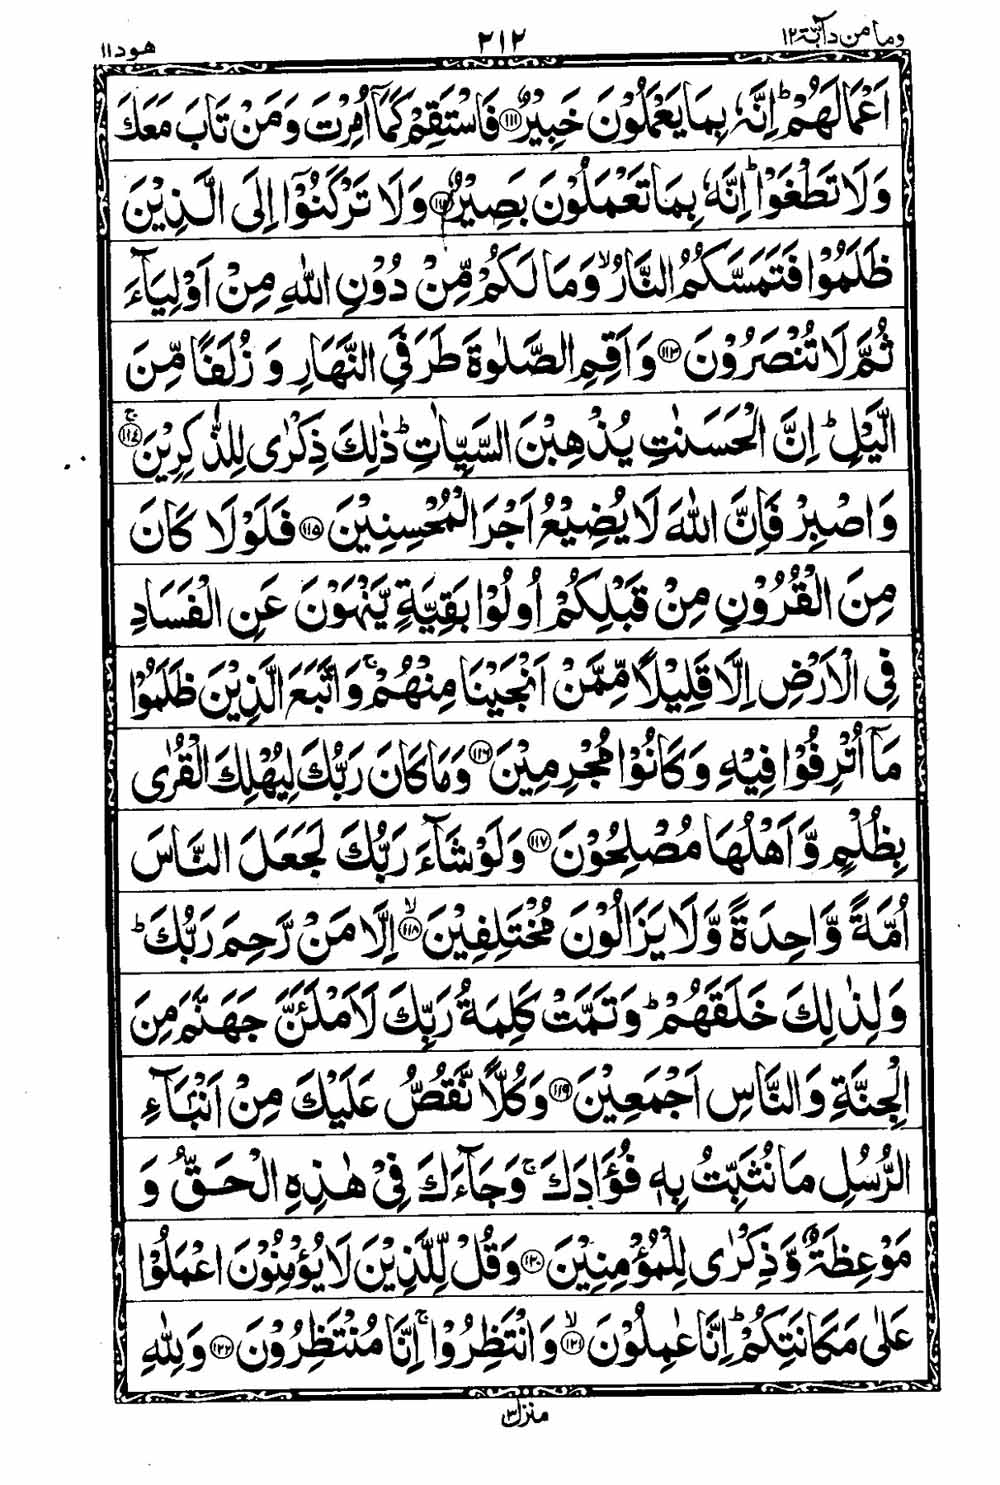 وما من دآبة ١٢ ٢١٢ هود ١١
اَعْمَالَهُمْ ؕ اِنَّهٗ بِمَا يَعْمَلُوْنَ خَبِيْرٌ ﴿۱۱۱﴾ فَاسْتَقِمْ كَمَاۤ اُمِرْتَ وَمَنْ تَابَ مَعَكَ
وَلَا تَطْغَوْا ؕ اِنَّهٗ بِمَا تَعْمَلُوْنَ بَصِيْرٌ ﴿۱۱۲﴾ وَلَا تَرْكَنُوْۤا اِلَى الَّذِيْنَ
ظَلَمُوْا فَتَمَسَّكُمُ النَّارُ ۙ وَمَا لَكُمْ مِّنْ دُوْنِ اللّٰهِ مِنْ اَوْلِيَآءَ
ثُمَّ لَا تُنْصَرُوْنَ ﴿۱۱۳﴾ وَاَقِمِ الصَّلٰوةَ طَرَفَيِ النَّهَارِ وَ زُلَفًا مِّنَ
الَّيْلِ ؕ اِنَّ الْحَسَنٰتِ يُذْهِبْنَ السَّيِّاٰتِ ؕ ذٰلِكَ ذِكْرٰى لِلذّٰكِرِيْنَ ۚ ﴿۱۱۴﴾
وَاصْبِرْ فَاِنَّ اللّٰهَ لَا يُضِيْعُ اَجْرَ الْمُحْسِنِيْنَ ﴿۱۱۵﴾ فَلَوْلَا كَانَ
مِنَ الْقُرُوْنِ مِنْ قَبْلِكُمْ اُولُوْا بَقِيَّةٍ يَّنْهَوْنَ عَنِ الْفَسَادِ
فِي الْاَرْضِ اِلَّا قَلِيْلًا مِّمَّنْ اَنْجَيْنَا مِنْهُمْ ۚ وَاتَّبَعَ الَّذِيْنَ ظَلَمُوْا
مَاۤ اُتْرِفُوْا فِيْهِ وَكَانُوْا مُجْرِمِيْنَ ﴿۱۱۶﴾ وَمَا كَانَ رَبُّكَ لِيُهْلِكَ الْقُرٰى
بِظُلْمٍ وَّاَهْلُهَا مُصْلِحُوْنَ ﴿۱۱۷﴾ وَلَوْ شَآءَ رَبُّكَ لَجَعَلَ النَّاسَ
اُمَّةً وَّاحِدَةً وَّلَا يَزَالُوْنَ مُخْتَلِفِيْنَ ۙ ﴿۱۱۸﴾ اِلَّا مَنْ رَّحِمَ رَبُّكَ ؕ
وَلِذٰلِكَ خَلَقَهُمْ ؕ وَتَمَّتْ كَلِمَةُ رَبِّكَ لَاَمْلَـَٔنَّ جَهَنَّمَ مِنَ
الْجِنَّةِ وَالنَّاسِ اَجْمَعِيْنَ ﴿۱۱۹﴾ وَكُلًّا نَّقُصُّ عَلَيْكَ مِنْ اَنْۢبَآءِ
الرُّسُلِ مَا نُثَبِّتُ بِهٖ فُؤَادَكَ ۚ وَجَآءَكَ فِيْ هٰذِهِ الْحَقُّ وَ
مَوْعِظَةٌ وَّذِكْرٰى لِلْمُؤْمِنِيْنَ ﴿۱۲۰﴾ وَقُلْ لِّلَّذِيْنَ لَا يُؤْمِنُوْنَ اعْمَلُوْا
عَلٰى مَكَانَتِكُمْ ؕ اِنَّا عٰمِلُوْنَ ۙ ﴿۱۲۱﴾ وَانْتَظِرُوْا ۚ اِنَّا مُنْتَظِرُوْنَ ﴿۱۲۲﴾ وَلِلّٰهِ
منزل ٣